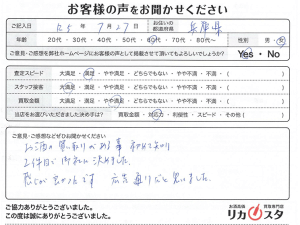 お客様の声をお聞かせください
ご記入日 R5年7月27日 お住いの都道府県 兵庫県
年齢 20代・30代・40代・50代・60代・70代・80代~ 性別 男・女
ご意見・ご感想を弊社ホームページにお客様の声として掲載させて頂いてもよろしいでしょうか? Yes・No
査定スピード 大満足・満足・どちらでもない・やや不満・不満・( )
スタッフ接客 大満足・満足・どちらでもない・やや不満・不満・( )
買取金額 大満足・満足・どちらでもない・やや不満・不満・( )
当店をお選びいただきました決め手は? 買取金額・対応力・利便性・スピード・その他( )
ご意見・ご感想などぜひお聞かせください。
お酒の買取りがある事 初めて知り
2件目で 決めました。
感じが 良かったです 広告通りだと思いました。
ご協力ありがとうございました。
この度は誠にありがとうございました。
お酒高価買取専門店
リカスタ